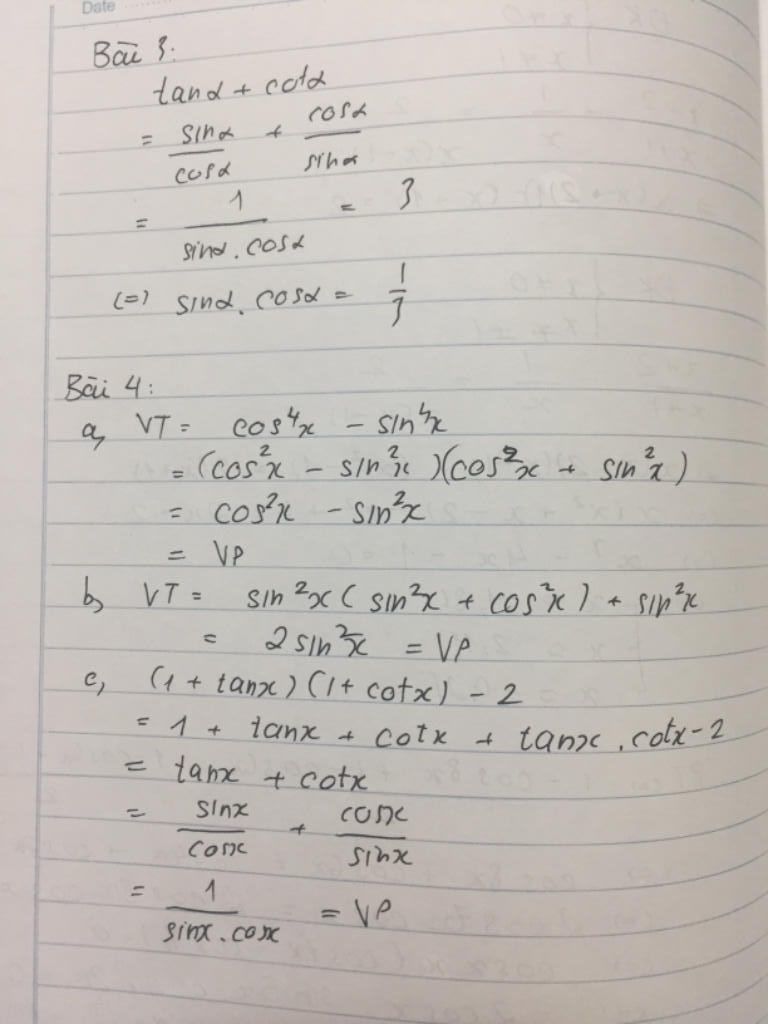 Date
Bài 3:
tanα + cotα
= sinα/cosα + cosα/sinα
= 1/(sinα.cosα) = 3
(=) sinα.cosα = 1/3
Bài 4:
a, VT = cos⁴x - sin⁴x
= (cos²x - sin²x)(cos²x + sin²x)
= cos²x - sin²x
= VP
b, VT = sin²x(sin²x + cos²x) + sin²x
= 2sin²x = VP
c, (1 + tanx)(1 + cotx) - 2
= 1 + tanx + cotx + tanx.cotx - 2
= tanx + cotx
= sinx/cosx + cosx/sinx
= 1/(sinx.cosx) = VP